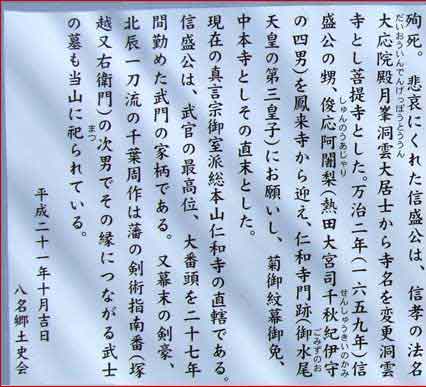 殉死。悲哀にくれた信盛公は、信孝の法名
だいおういんでんげっぽうとううん
大応院殿月峯洞雲大居士から寺名を変更洞雲
寺とし菩提寺とした。万治二年(一六五九年)信
しゅんのうあじゃり せんしゅうきいのかみ
盛公の甥、俊応阿闍梨(熱田大宮司千秋紀伊守
ごみずのお
の四男)を鳳来寺から迎え、仁和寺門跡(御水尾
天皇の第三皇子)にお願いし、菊御紋幕御免、
中本寺としその直末とした。
現在の真言宗御室派総本山仁和寺の直轄である。
信盛公は、武官の最高位、大番頭を二十七年
間勤めた武門の家柄である。又幕末の剣豪、
北辰一刀流の千葉周作は藩の剣術指南番(塚
越又右衛門)の次男でその縁につながる武士
まつ
の墓も当山に祀られている。
平成二十一年十月吉日
八名郷土史会